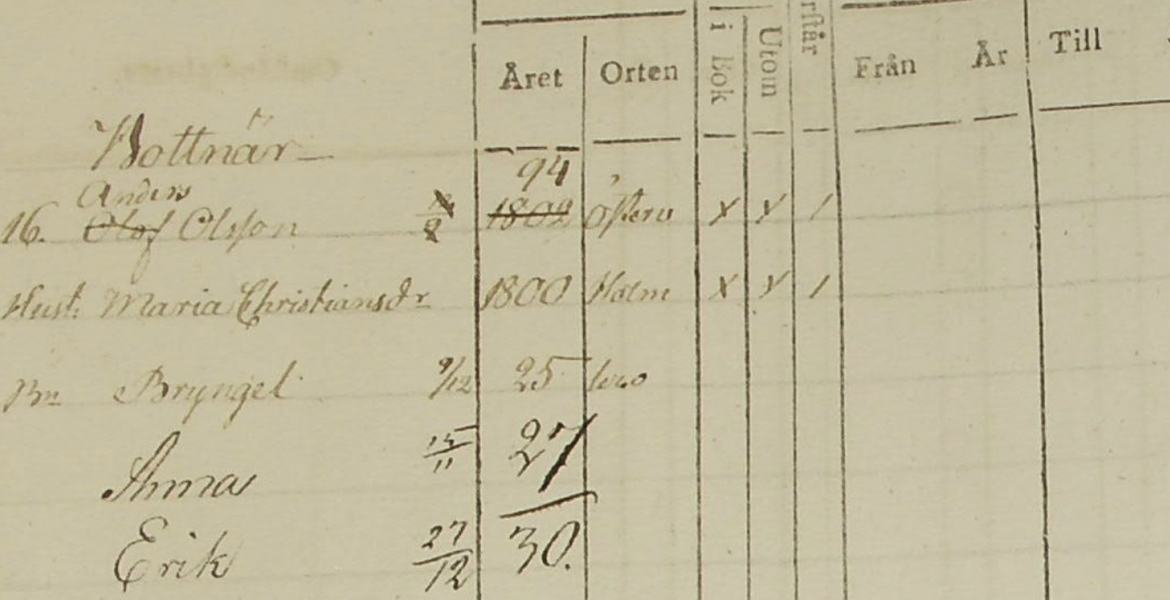 Året Orten i Bok Utom rstår Från År Till
Bottnär
94
Anders
16. Olof Olsson 1802 Östero X Y /
Hust: Maria Christiansdr 1800 Holm X Y /
Bn Bryngel 9/12 25
Anna 15/11 27
Erik 27/12 30.